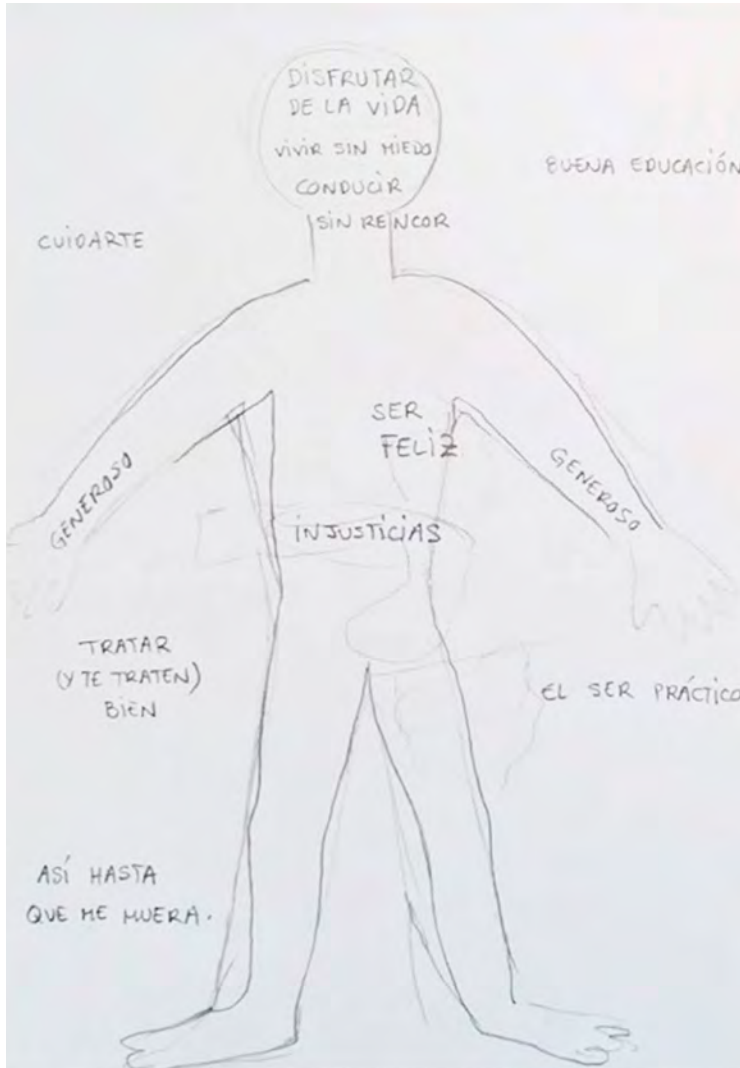 DISFRUTAR
DE LA VIDA
VIVIR SIN MIEDO
CONDUCIR
SIN RENCOR
BUENA EDUCACIÓN
CUIDARTE
SER
FELIZ
GENEROSO
GENEROSO
INJUSTICIAS
TRATAR
(Y TE TRATEN)
BIEN
EL SER PRÁCTICO
ASÍ HASTA
QUE ME MUERA.